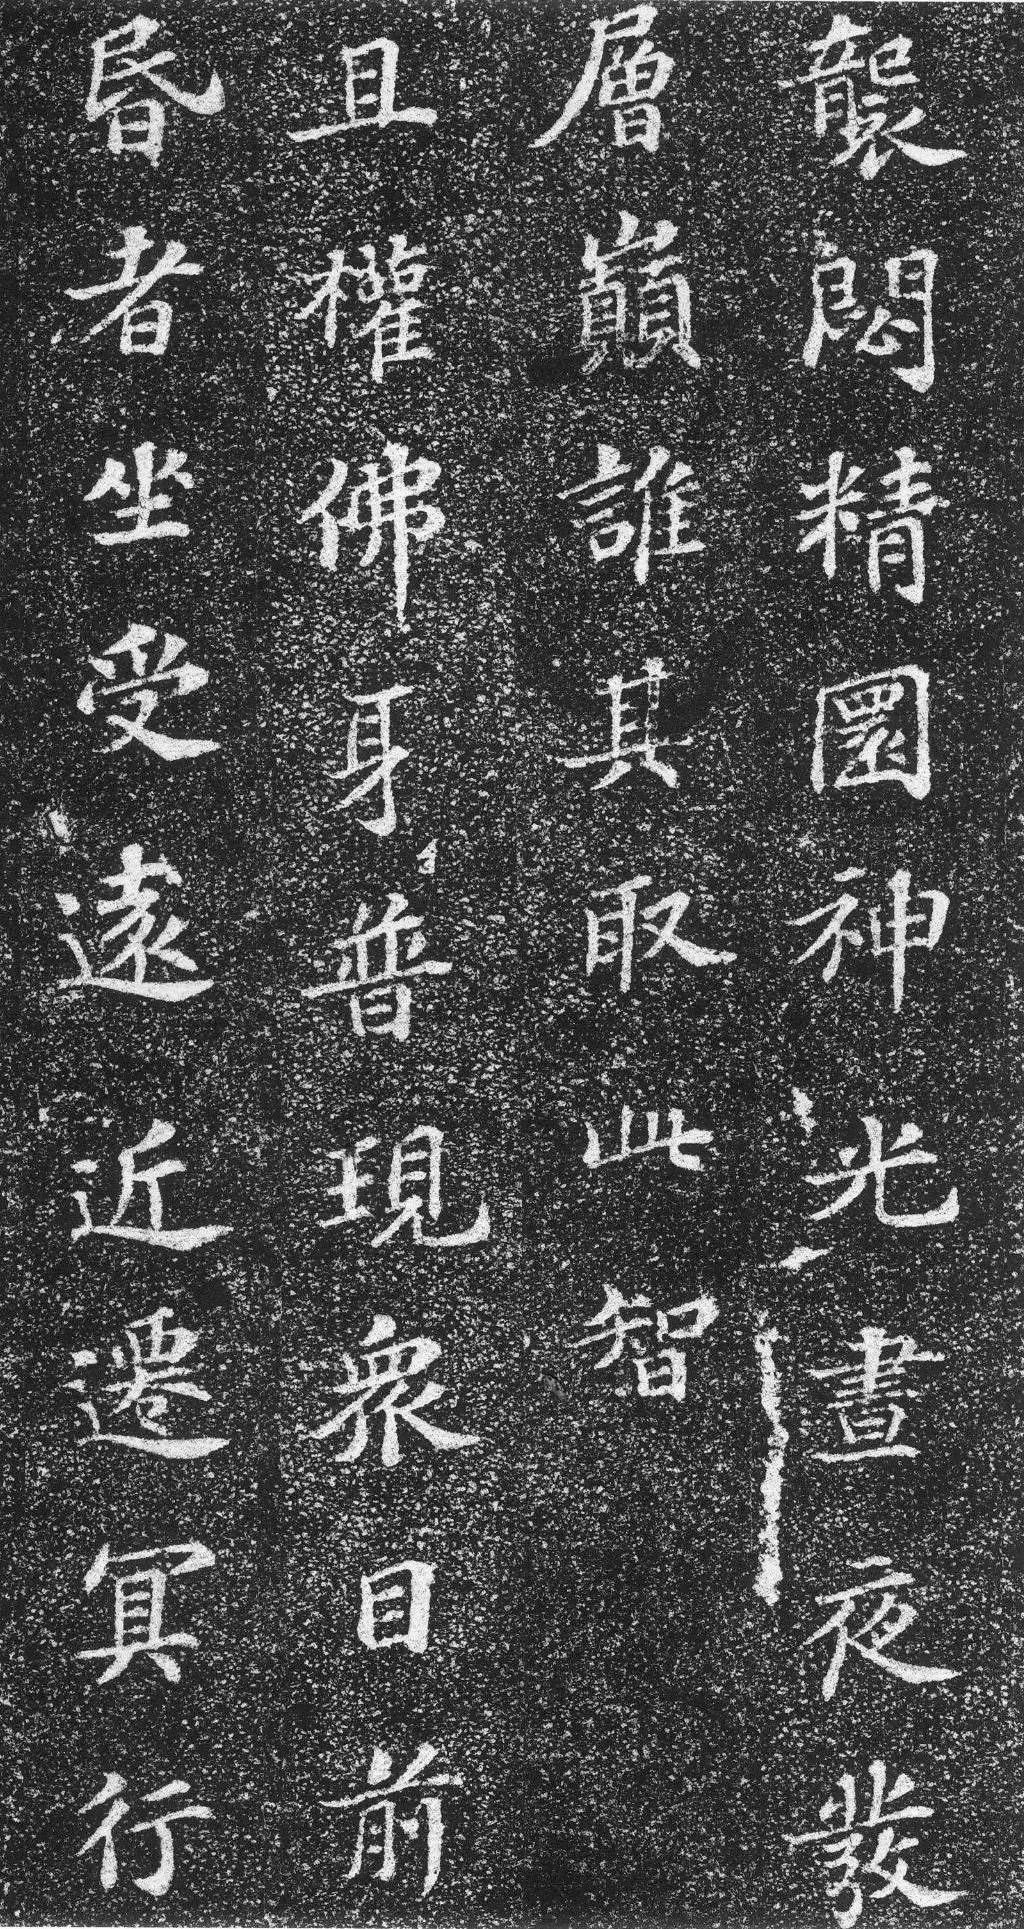 襲閟精圜神光晝夜發
層巔誰其取此智
且權佛身普現眾目前
昏者坐受遠近遷冥行